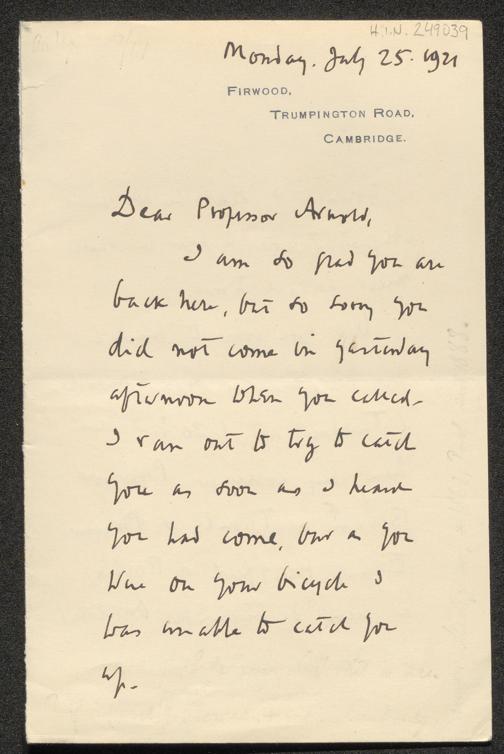 H.I.N. 249039
Monday. July 25. 1921
FIRWOOD,
TRUMPINGTON ROAD,
CAMBRIDGE.
Dear Professor Arnold,
I am so glad you are
back here, but so sorry you
did not come in yesterday
afternoon when you called.
I ran out to try to catch
you as soon as I heard
you had come, but as you
were on your bicycle I
was unable to catch you
up.